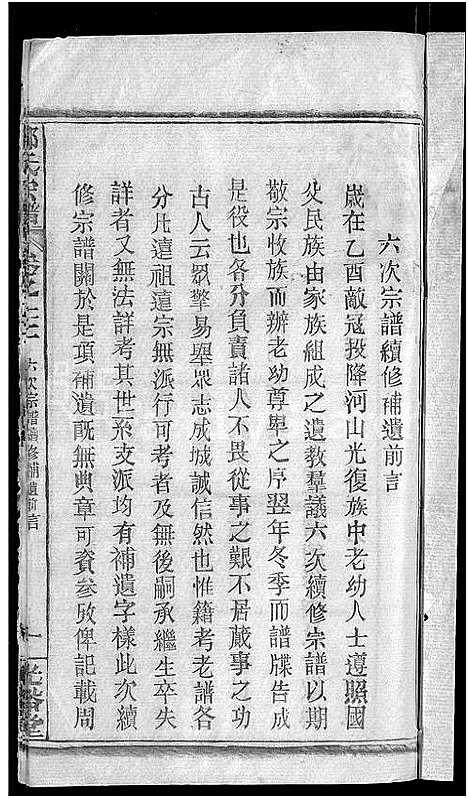 六次宗譜續修補遺前言
歲在乙酉敵寇投降河山光復族中老幼人士遵照國
父民族由家族組成之遺教羣議六次續修宗譜以期
敬宗收族而辦老幼尊卑之序翌年冬季而譜牒告成
是役也各分負責諸人不畏從事之艱不居蕆事之功
古人云眾擎易舉眾志成城誠信然也惟籍考老譜各
分凡遠祖遠宗無派行可考者及無後嗣承繼生卒失
詳者又無法詳考其世系支派均有補遺字樣此次續
修宗譜關於是項補遺既無典章可資參攷俾記載周
氏宗譜
六次宗譜續修補遺前言
一
堂